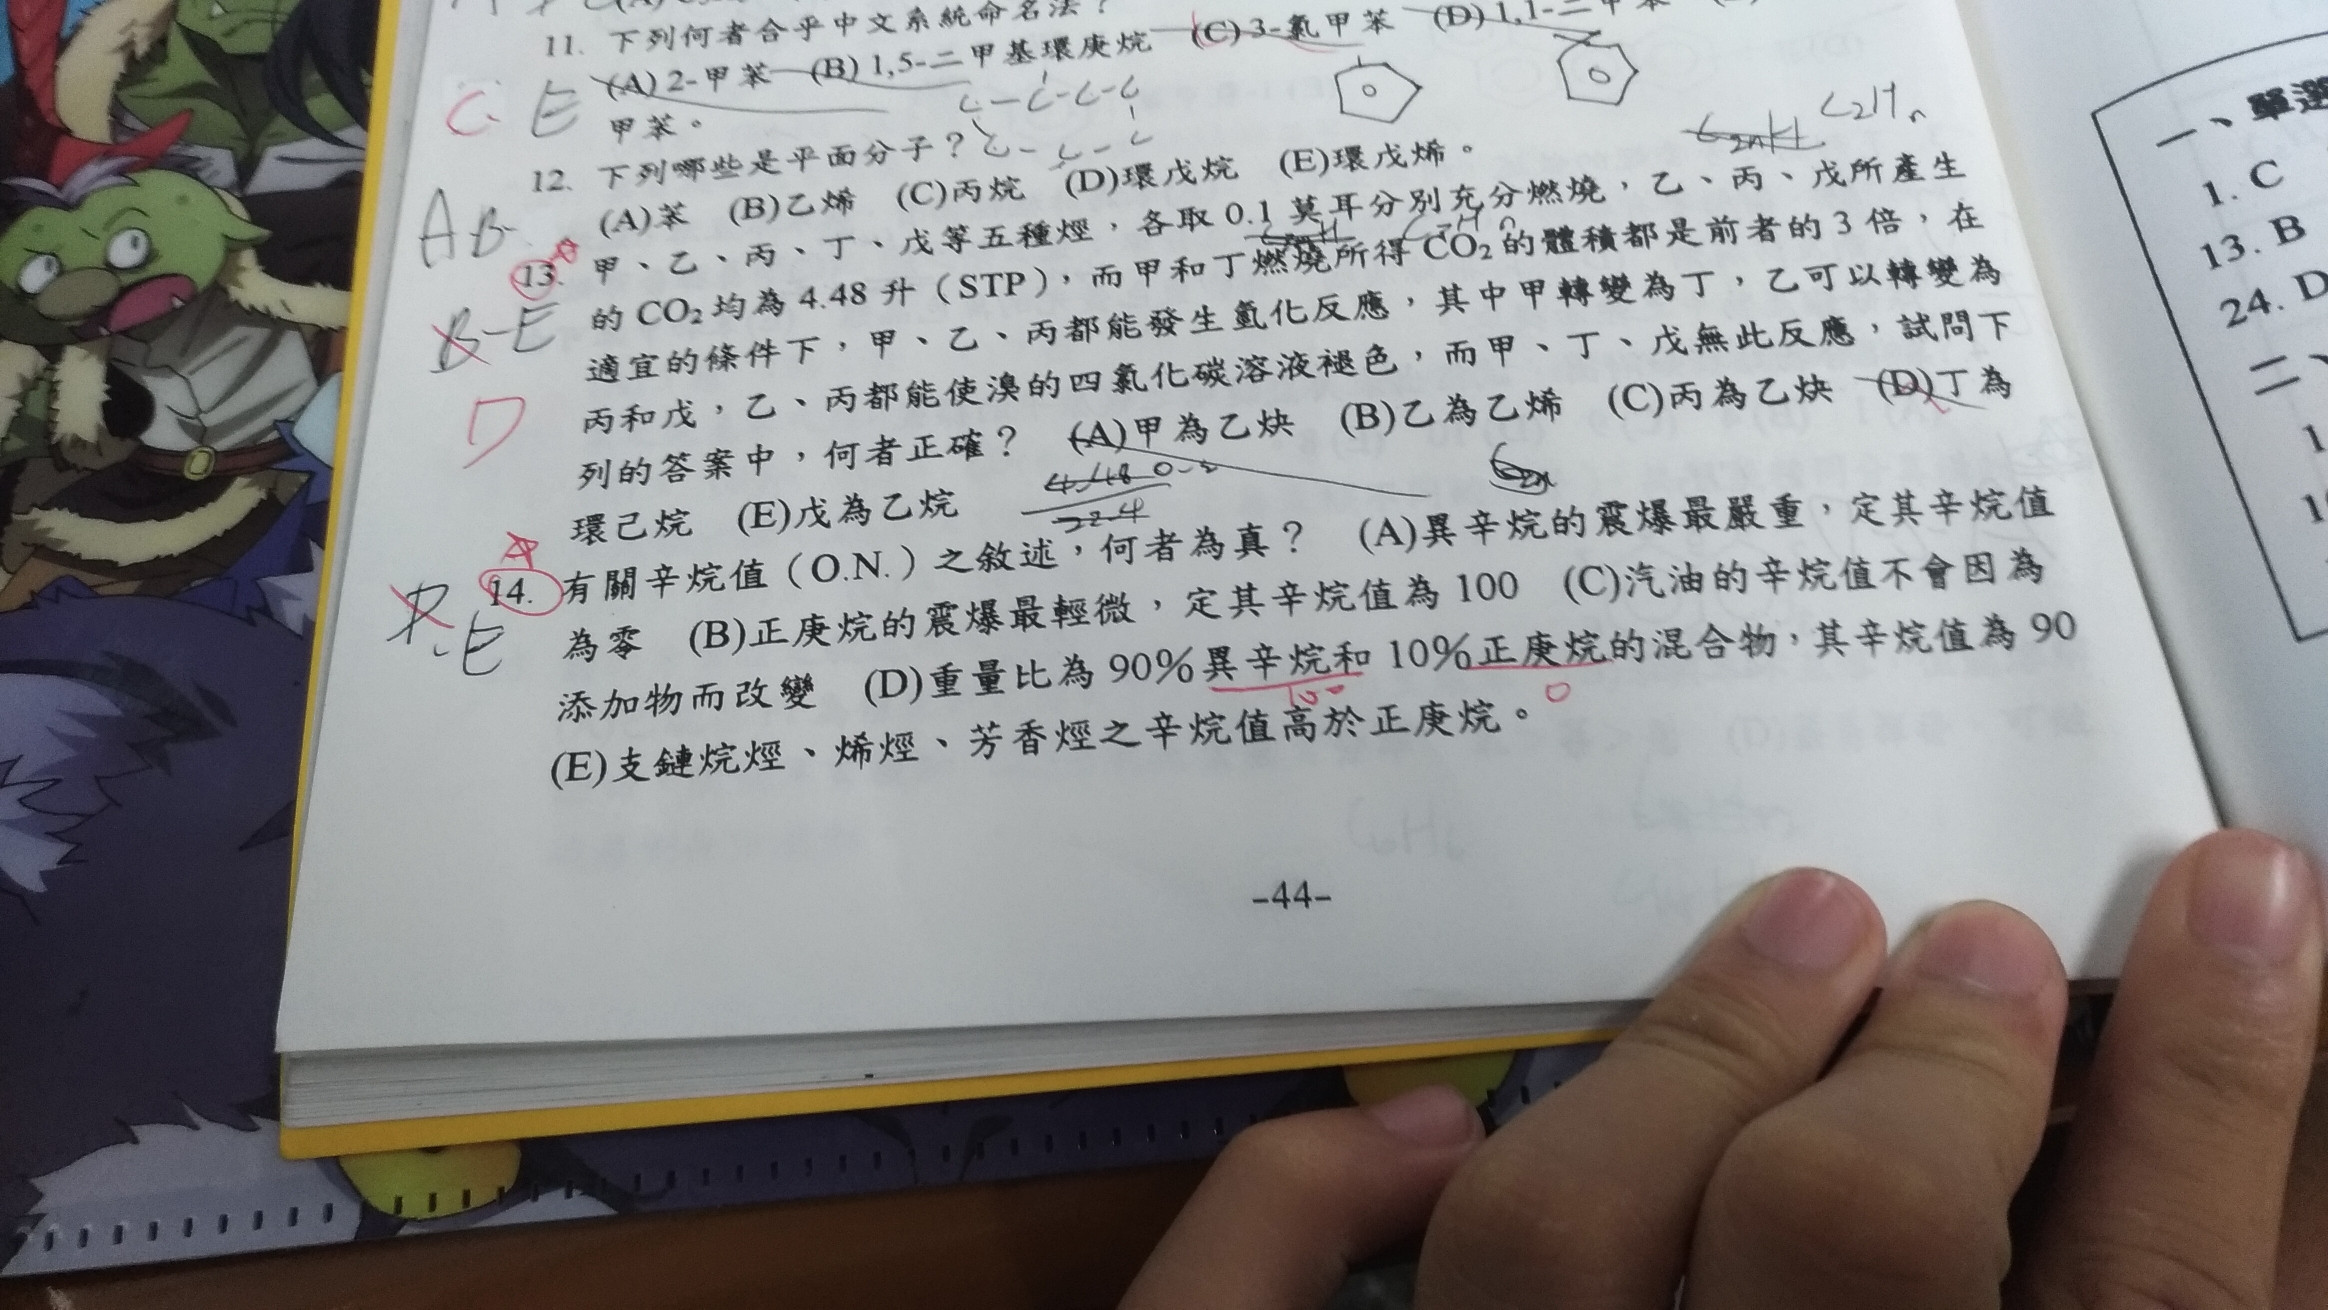 11. 下列何者合乎中文系統命名法?
(A) 2-甲苯 (B) 1,5-二甲基環庚烷 (C) 3-氯甲苯 (D) 1,1-二甲苯
甲苯。
C E
12. 下列哪些是平面分子?
(A)苯 (B)乙烯 (C)丙烷 (D)環戊烷 (E)環戊烯。
AB
13. 甲、乙、丙、丁、戊等五種烴,各取 0.1 莫耳分別充分燃燒,乙、丙、戊所產生
的 CO2 均為 4.48 升(STP),而甲和丁燃燒所得 CO2 的體積都是前者的 3 倍,在
適宜的條件下,甲、乙、丙都能發生氫化反應,其中甲轉變為丁,乙可以轉變為
丙和戊,乙、丙都能使溴的四氯化碳溶液褪色,而甲、丁、戊無此反應,試問下
列的答案中,何者正確? (A)甲為乙炔 (B)乙為乙烯 (C)丙為乙炔 (D)丁為
環己烷 (E)戊為乙烷
B E
D
4.48
22.4
14. 有關辛烷值(O.N.)之敘述,何者為真? (A)異辛烷的震爆最嚴重,定其辛烷值
為零 (B)正庚烷的震爆最輕微,定其辛烷值為 100 (C)汽油的辛烷值不會因為
添加物而改變 (D)重量比為 90%異辛烷和 10%正庚烷的混合物,其辛烷值為 90
100 0
(E)支鏈烷烴、烯烴、芳香烴之辛烷值高於正庚烷。
E
-44-
一、單選
1. C
13. B
24. D
二、